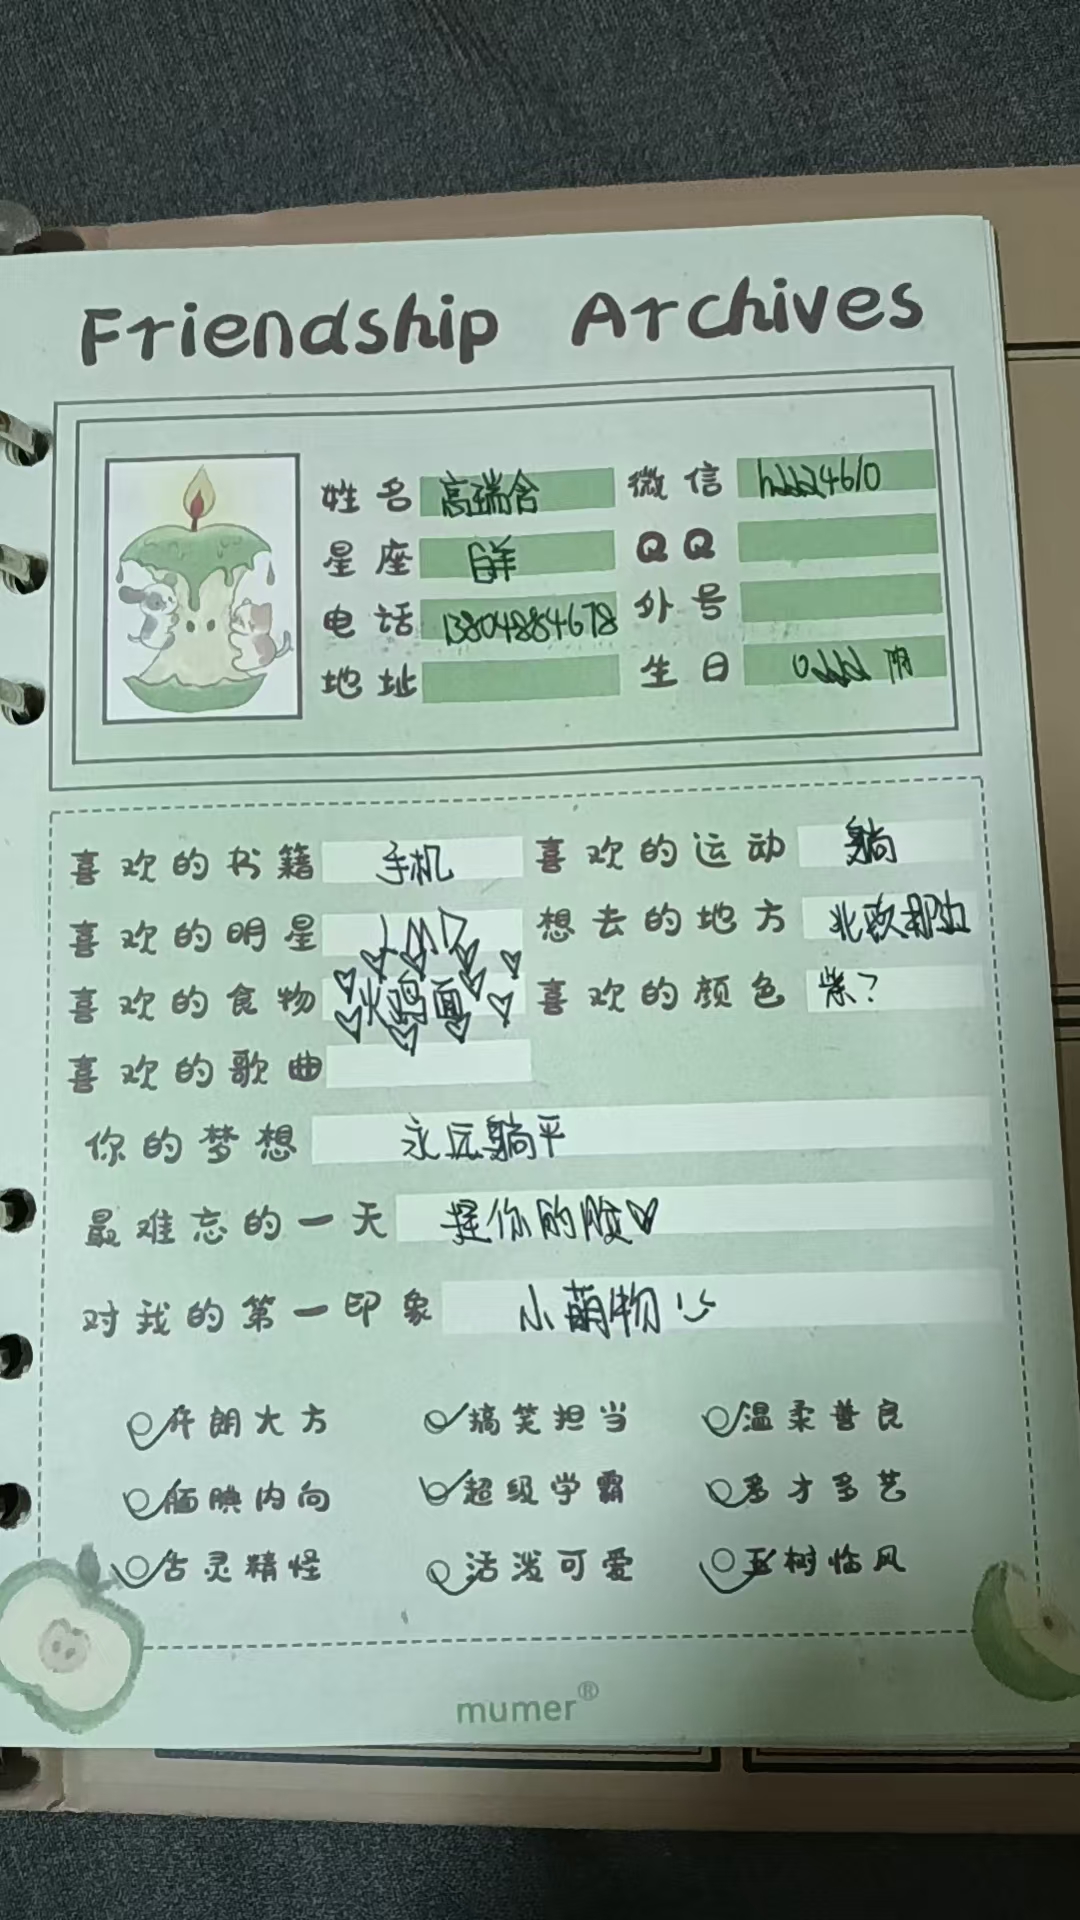 Friendship Archives
姓名 高瑞含 微信
星座 白羊 QQ
电话 13804884678 外号
地址 生日
喜欢的书籍 手机 喜欢的运动 躺
喜欢的明星 想去的地方 北欧那边
喜欢的食物 火鸡面 喜欢的颜色 紫?
喜欢的歌曲
你的梦想 永远躺平
最难忘的一天 捏你的脸
对我的第一印象 小萌物
开朗大方 搞笑担当 温柔善良
腼腆内向 超级学霸 多才多艺
古灵精怪 活泼可爱 玉树临风
mumer®